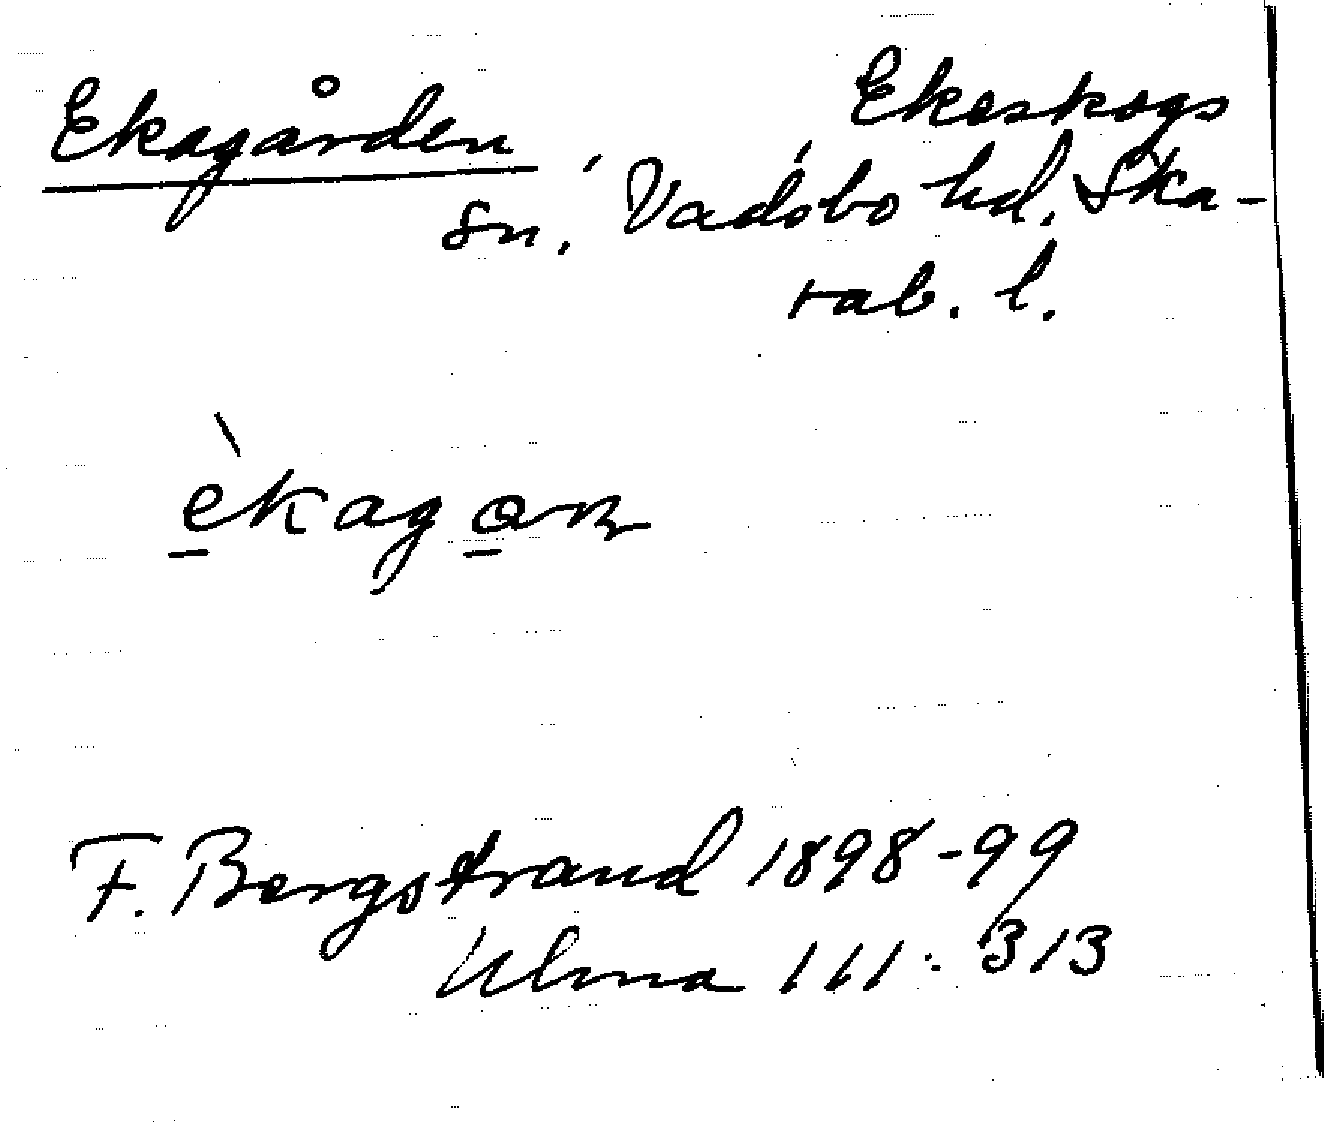 Ekagården, Ekeskogs
sn., Vadsbo hd. Ska-
rab. l.
èkagɑrn
F. Bergstrand 1898-99
Ulma 111:313